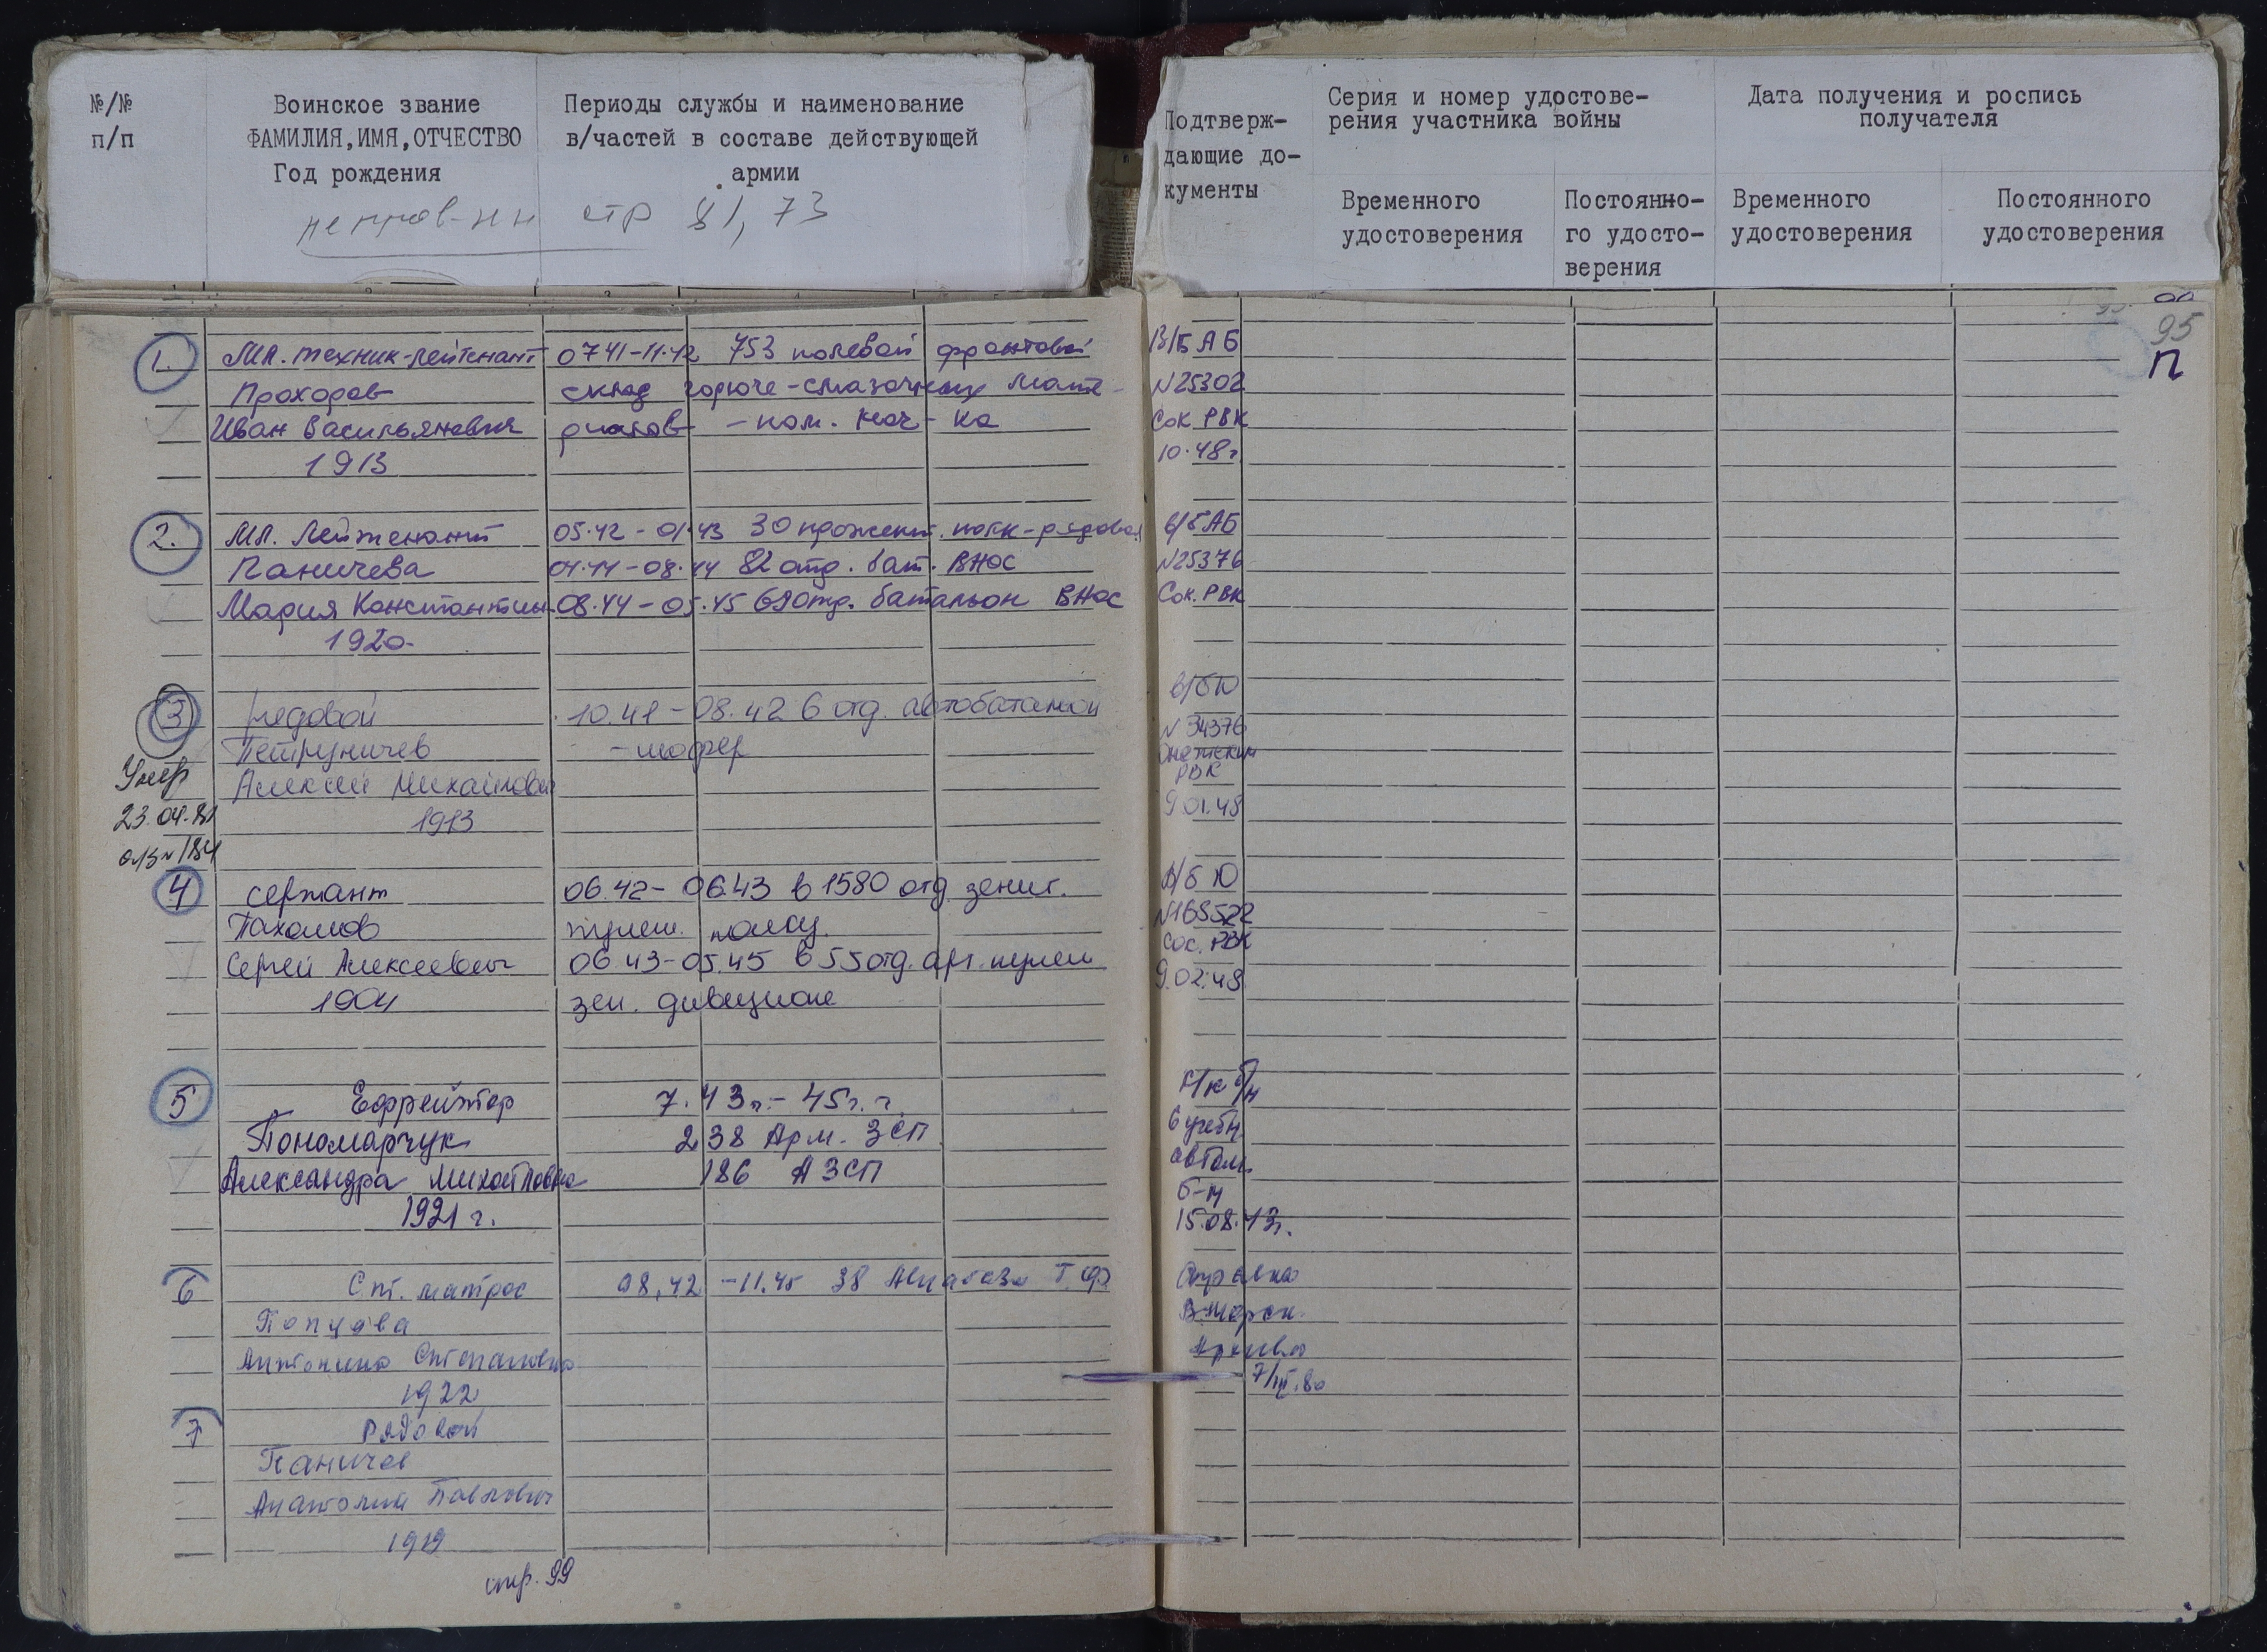 №/№
п/п
Воинское звание
ФАМИЛИЯ, ИМЯ, ОТЧЕСТВО
Год рождения
Периоды службы и наименование
в/частей в составе действующей
армии
стр 81, 73
Подтверж-
дающие до-
кументы
Серия и номер удостове-
рения участника войны
Временного
удостоверения
Постоянно-
го удосто-
верения
Дата получения и роспись
получателя
Временного
удостоверения
Постоянного
удостоверения
95
П
1. Мл. техник-лейтенант 0741-11.42 753 полевой фронтовой В/Б АБ
Прохоров склад горюче-смазочных мате- N25302
Иван Васильянович риалов - пом. нач-ка Сок РВК
1913 10.48г
2. Мл. Лейтенант 05.42 - 01.43 30 прожект. полк-рядовой в/б АБ
Паничева 04.44-08.44 82 отд. бат. ВНОС N25376
Мария Константин 08.44-05.45 69 отд. батальон ВНОС Сок. РВК
1920
3 рядовой 10.41-08.42 6 отд. автобатальон в/б Ю
Петруничев - шофер N 34376
РВК
Умер Алексей Михайлович 9.01.48
23.04.81 1913
184
4 сержант 06.42- 06.43 в 1580 отд. зенит. в/б Ю
Пахомов пулем. полку. N168522
Сергей Алексеевич 06.43-05.45 в 55 отд. арт. пулем РВК
1904 зен. дивизионе 9.02.48
5 Ефрейтор 7.43г.-45г.г. б/н
Пономарчук 238 Арм. ЗСП 6 учебн.
Александра Михайловна 186 АЗСП автом.
1921 г. б-н
15.08.43г.
6 Ст. матрос 08,42 -11.45 38 Авиабаза Т.Ф. Справка
Попцова В-Морск.
Антонина Степановна Архива
1922 7/III.80
7 Рядовой
Паничев
Анатолий Павлович
1919
стр. 99